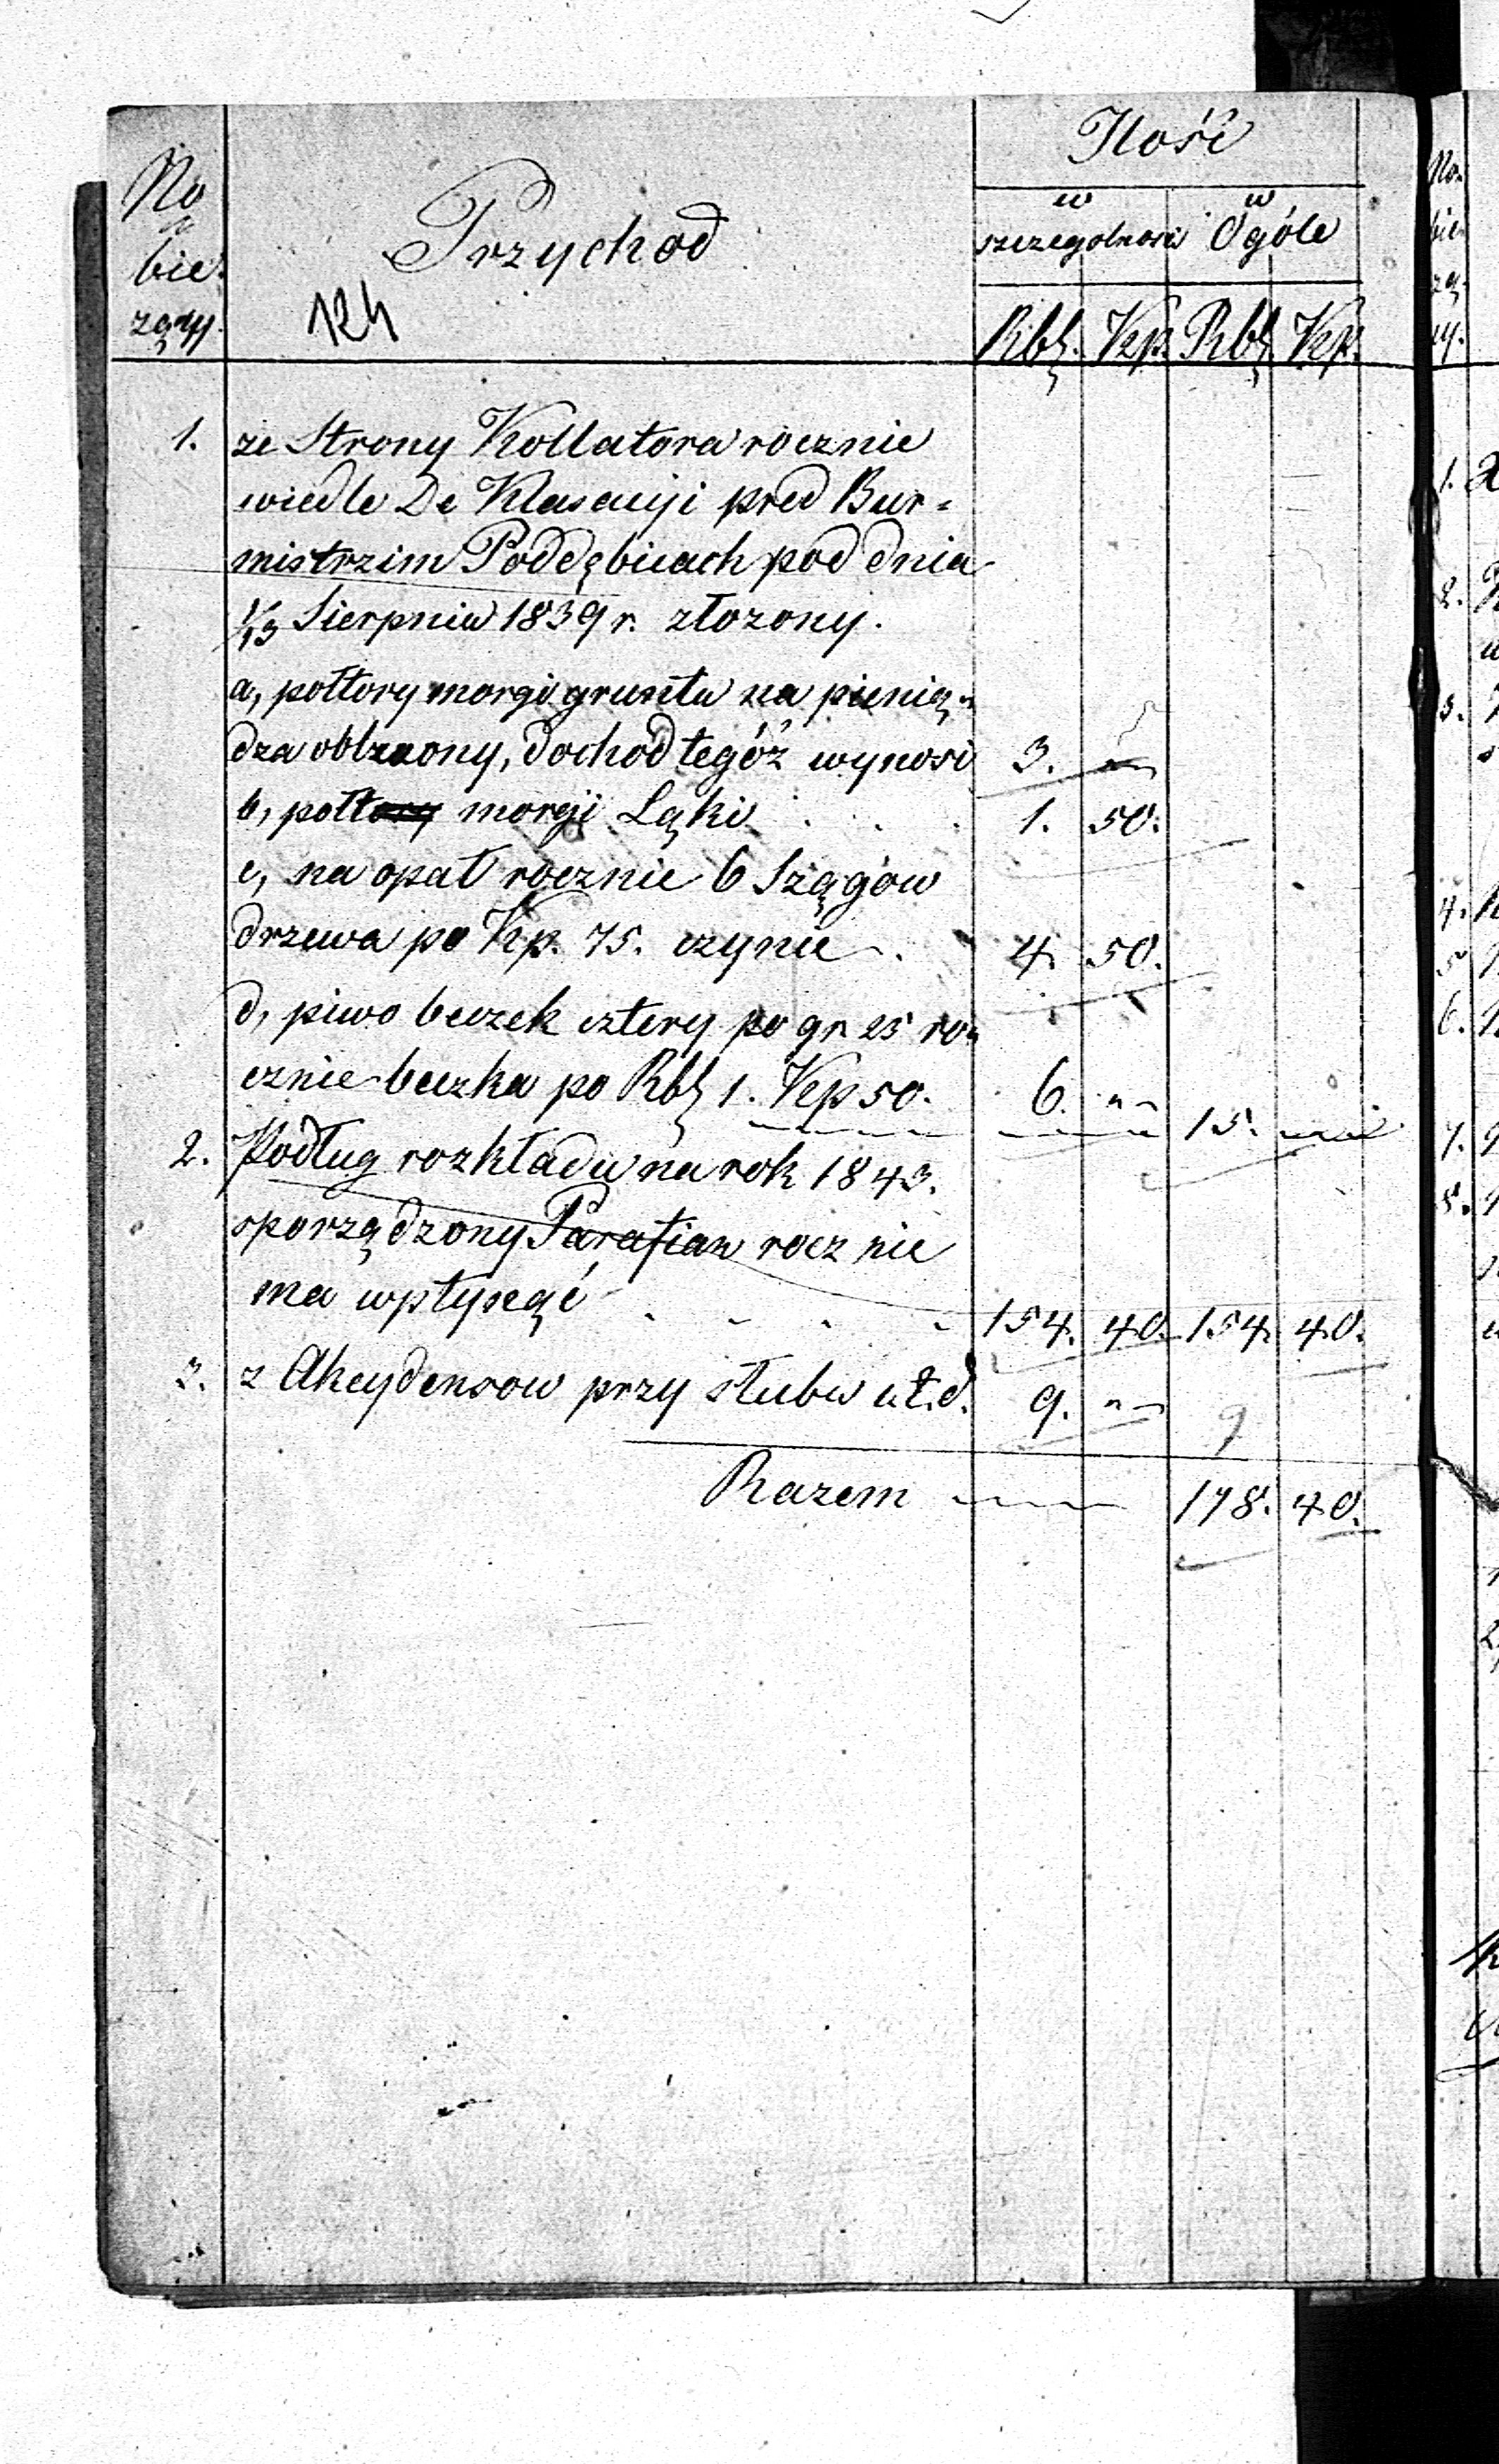 No
bie
zący.
Przychod
124
Ilość
w szczegolności
w Ogóle
Rbl. Kp. Rbl Kp.
1. ze Strony Kollatora rocznie
wiedle De Klaracyji pred Bur=
mistrzim Poddębicach pod dnia
1/13 Sierpnia 1839 r. złozony.
a, połtory morgi gruntu na pienią=
dza oblzcony, dochod tegóż wynosi 3. "
b, połt morgji Ląki . . . 1. 50.
c, na opał rocznie 6 Szągow
drzewa po Kp. 75. czynie . 4. 50.
d, piwo beczek cztery po gr 25 ro=
cznie beczka po Rbl 1. Kp 50. 6. " 15. "
2. Podług rozkładu na rok 1843.
sporządzony Parafian rocznie
ma wpłynąć . . . . 154. 40. 154. 40.
3. z Akcydensow przy słubu i t. d. 9. " 9
Razem 178. 40.
No.
bie
zą
cy.
1.
2.
3.
4.
5
6.
7.
8.